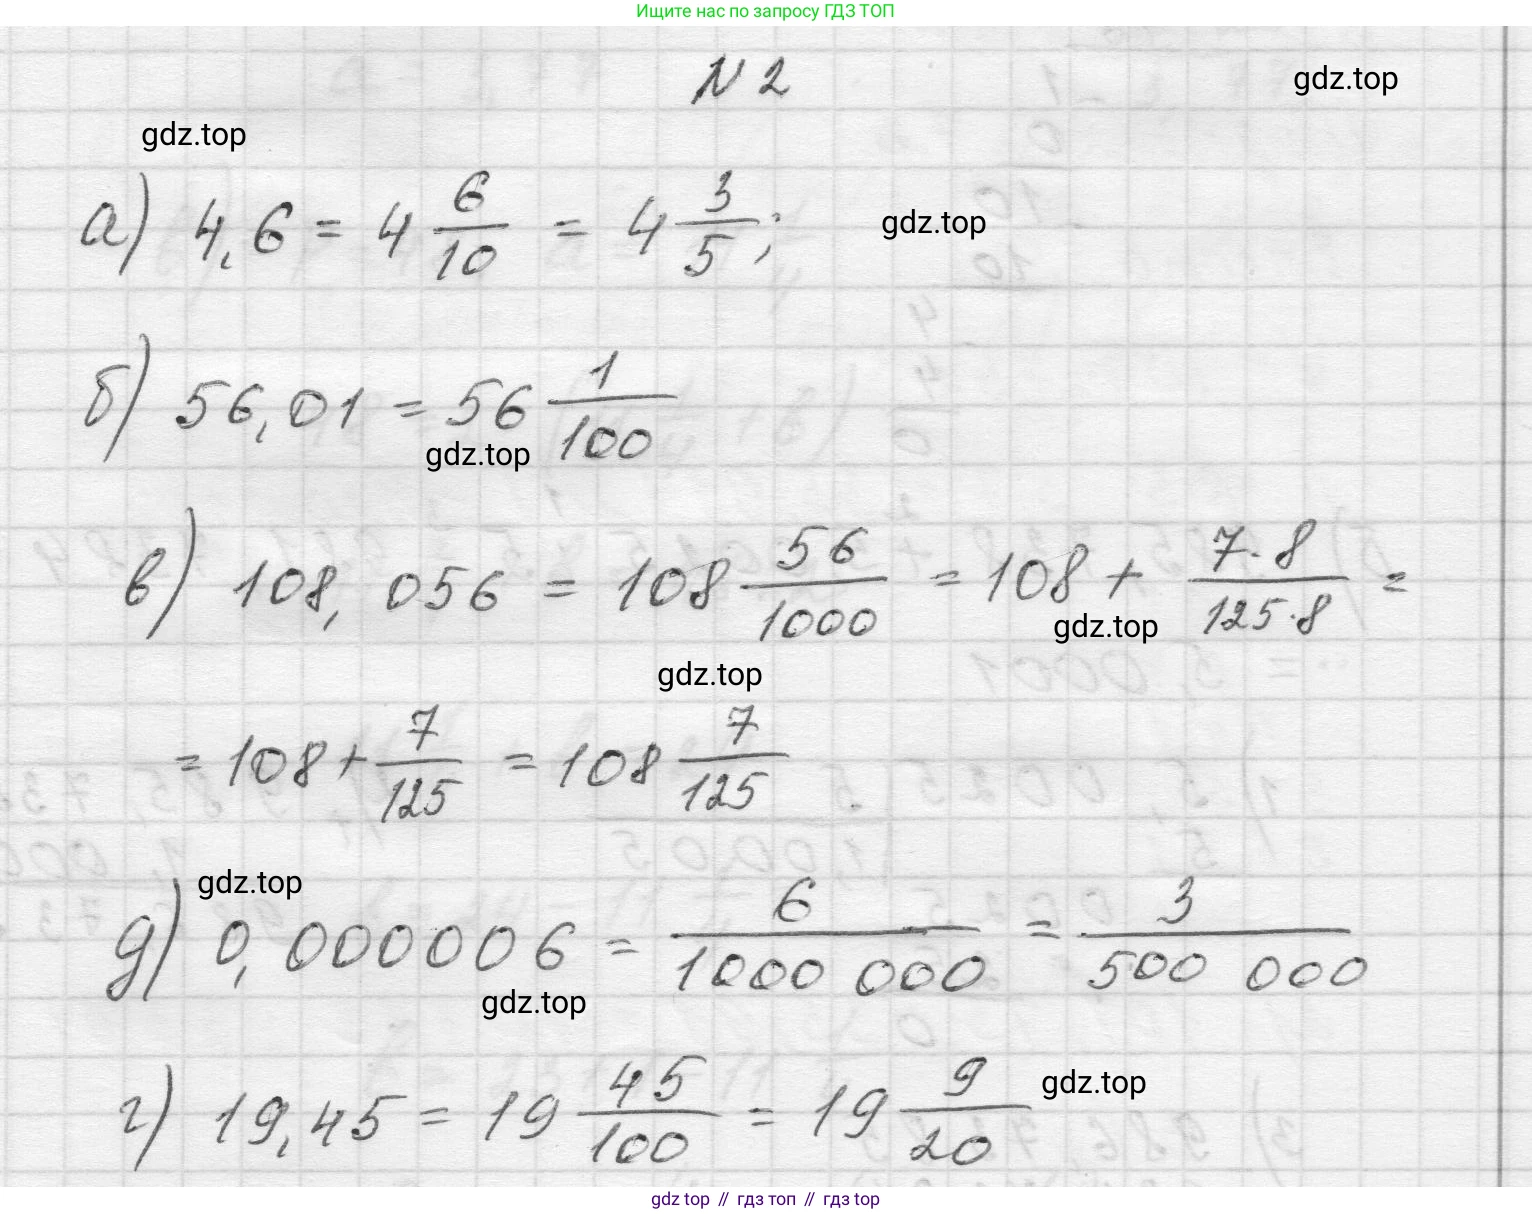 Ищите нас по запросу ГДЗ ТОП
N 2
gdz.top
gdz.top
а) 4,6 = 4 6/10 = 4 3/5;
gdz.top
б) 56,01 = 56 1/100
gdz.top
в) 108,056 = 108 56/1000 = 108 + 7·8/125·8 =
gdz.top
gdz.top
= 108 + 7/125 = 108 7/125
gdz.top
д) 0,000006 = 6/1000 000 = 3/500 000
gdz.top
г) 19,45 = 19 45/100 = 19 9/20
gdz.top
gdz top // гдз топ // гдз top